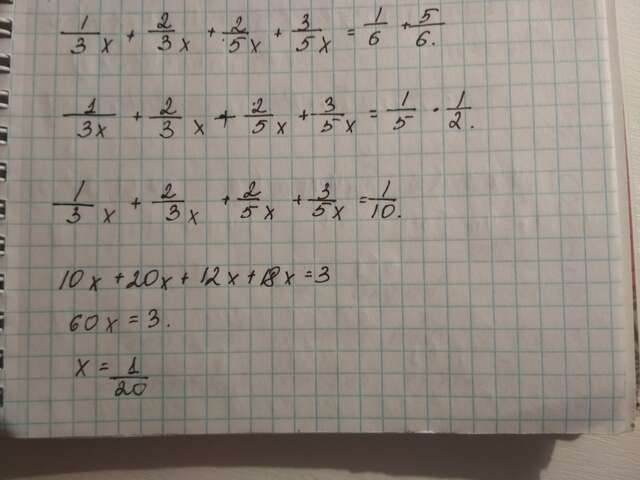 1/3 x + 2/3 x + 2/5 x + 3/5 x = 1/6 + 5/6.
1/3x + 2/3 x + 2/5 x + 3/5 x = 1/5 · 1/2.
1/3 x + 2/3 x + 2/5 x + 3/5 x = 1/10.
10x + 20x + 12x + 18x = 3
60x = 3.
x = 1/20